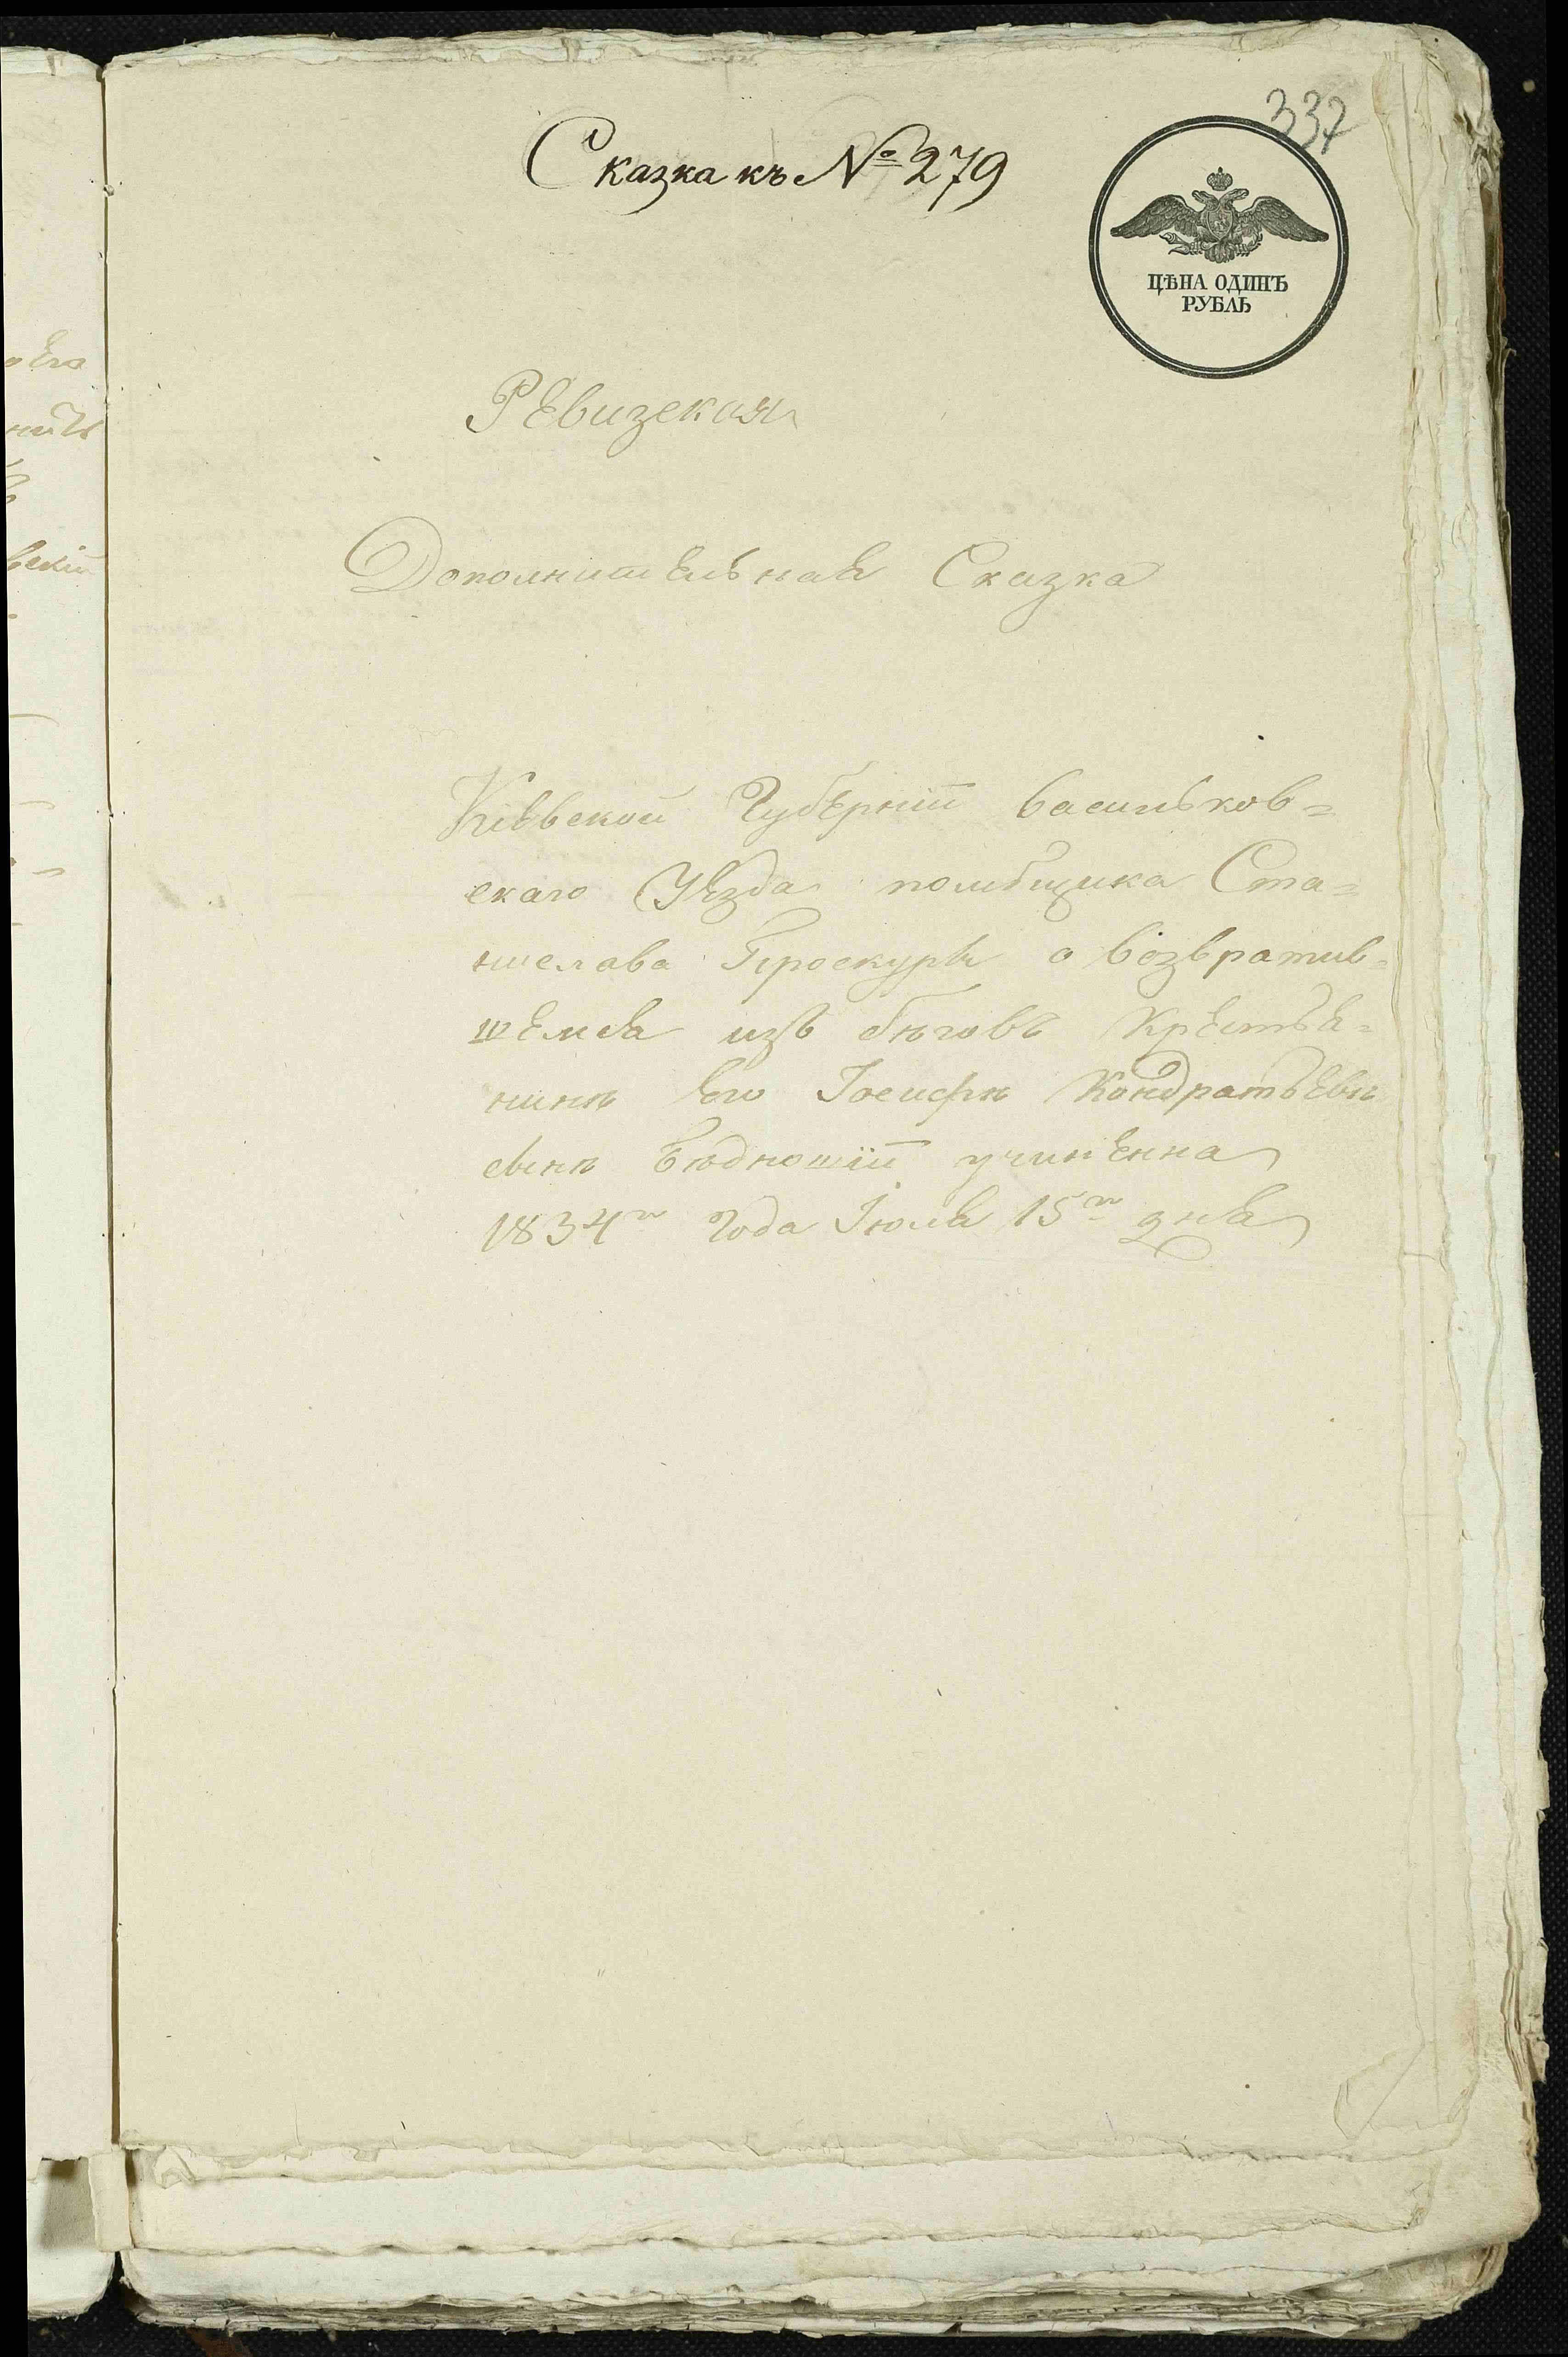 337
Сказка къ № 279
ЦѢНА ОДИНЪ
РУБЛЬ
Ревизская
Дополнительная Сказка
Кіевской Губерніи Васильков=
скаго Уѣзда помѣщика Ста=
нислава Проскуры о возвратив=
шемся изъ бѣговъ Крестья=
нинѣ Его Іосифѣ Кондратьевѣ
сынѣ Бѣдношіи учиненна
1834го Года Іюля 15го дня